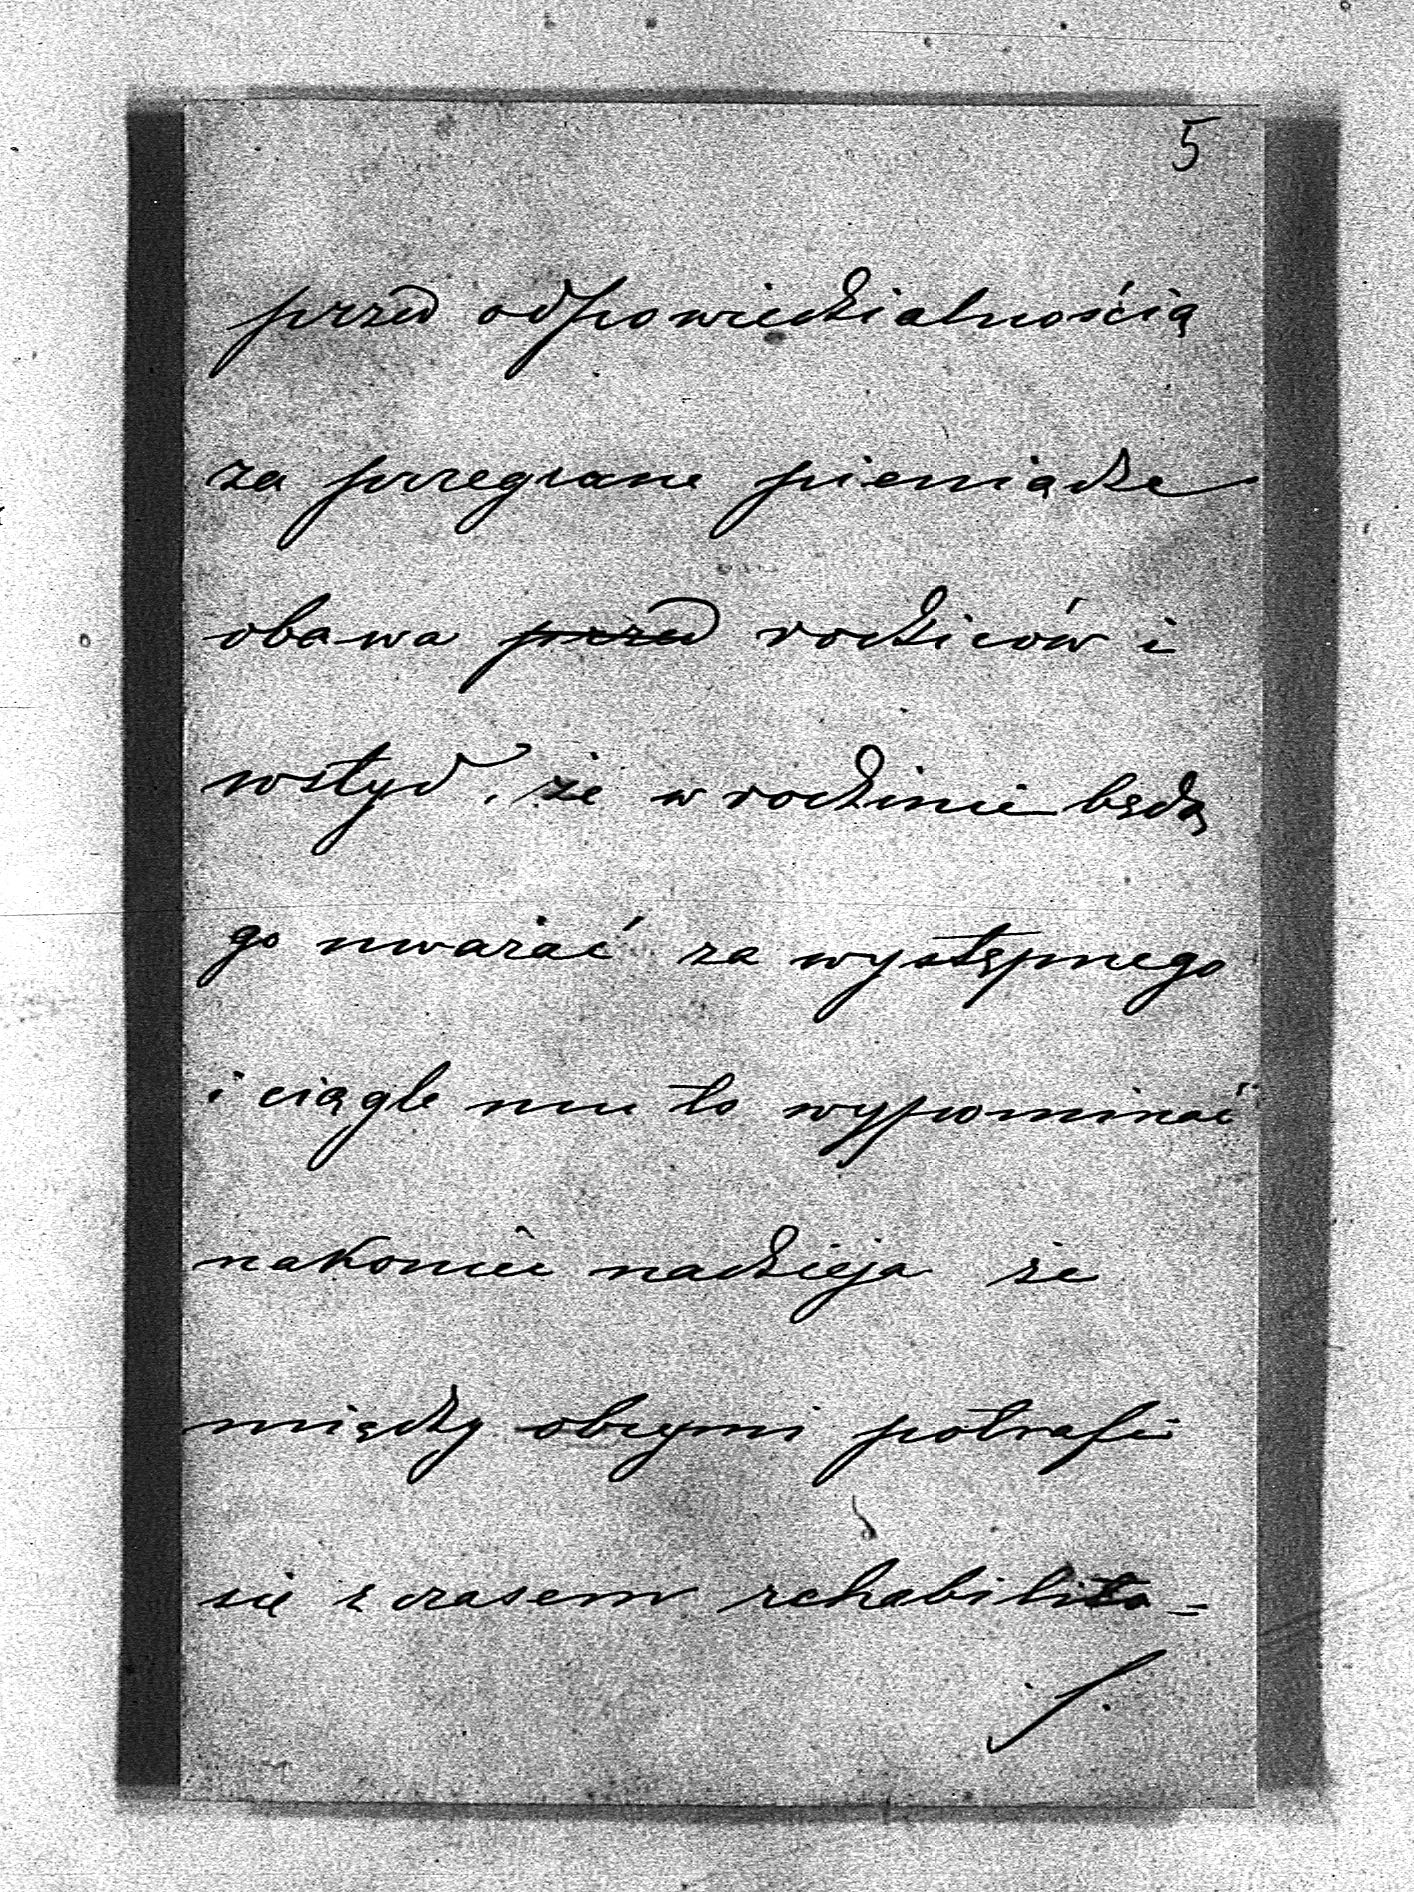 5
przed odpowiedzialnością
za przegrane pieniądze
obawa przed rodziców i
wstyd, że w rodzinie będą
go uważać za występnego
i ciągle mu to wypominać
nakoniec nadzieja że
między obcymi potrafi
się z czasem rehabilito-
./.